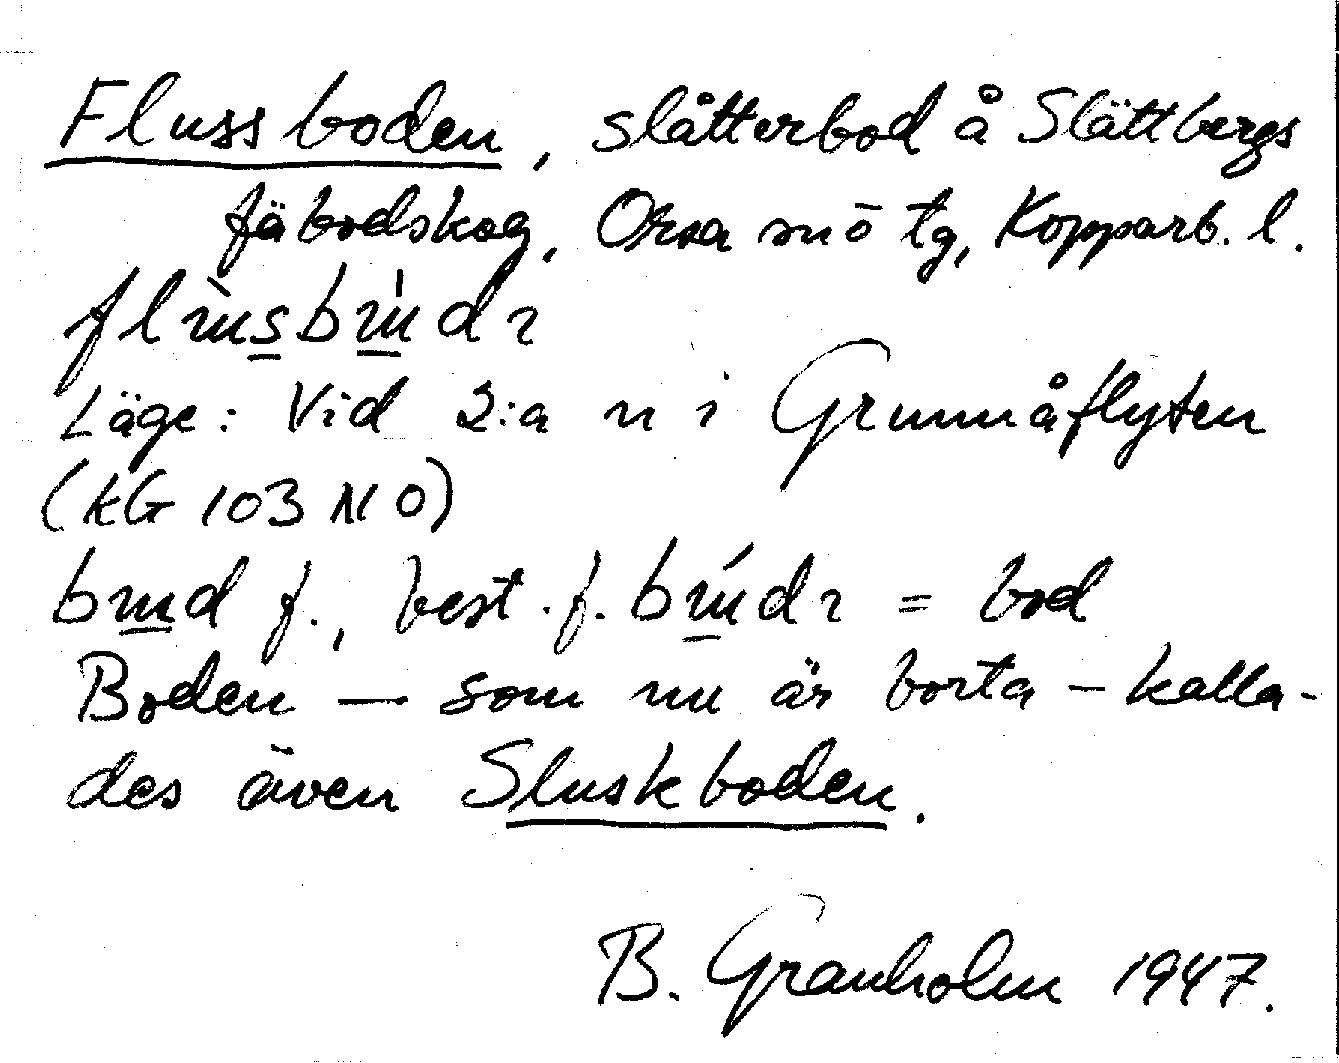 Flussboden, slåtterbod å Slättbergs
fäbodskog, Orsa snō tg, Kopparb. l.
Läge: Vid 2:a n i Grunnåflyten
(kG 103 NO)
f., best. f. = bod
Boden — som nu är borta – kalla-
des även Sluskboden.
B. Granholm 1947.